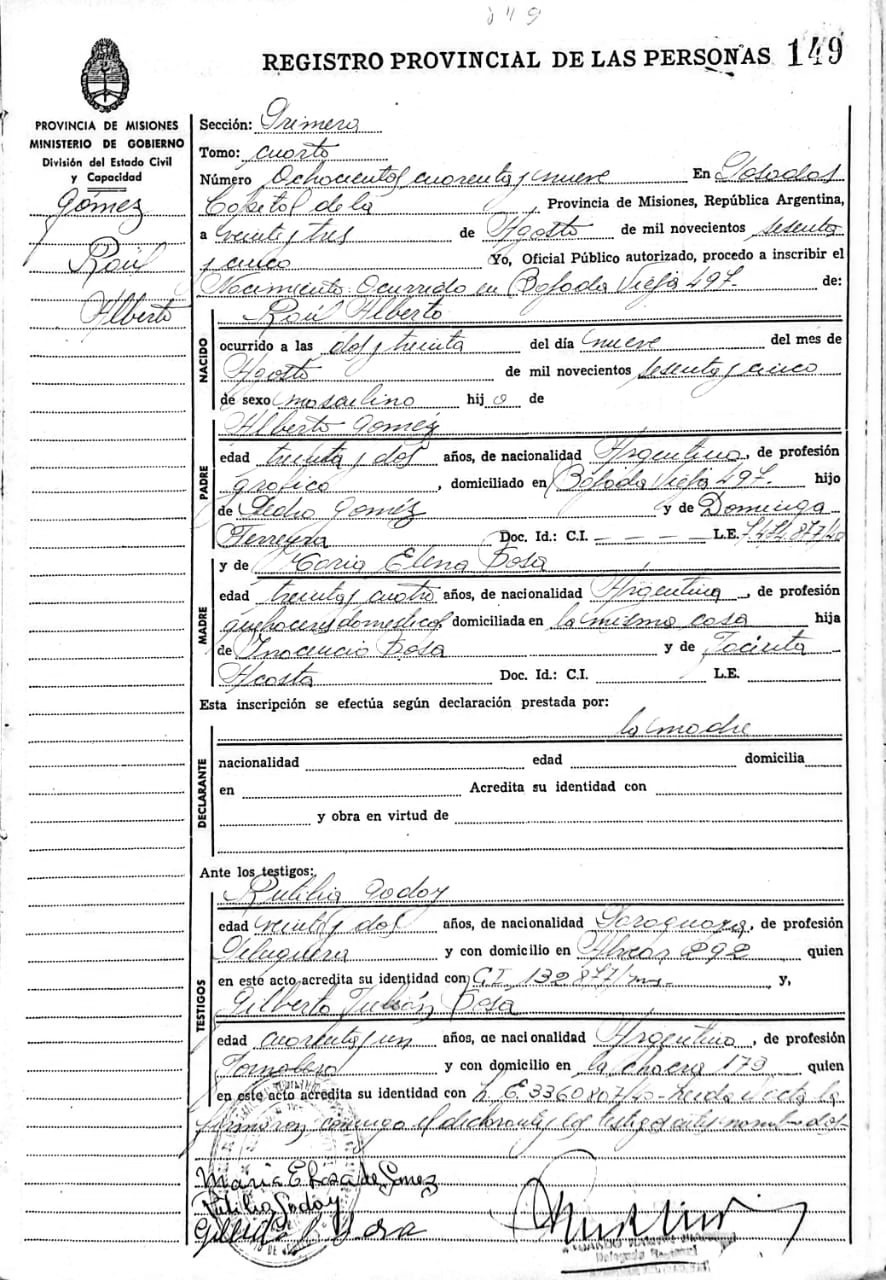 849
REGISTRO PROVINCIAL DE LAS PERSONAS 149
PROVINCIA DE MISIONES
MINISTERIO DE GOBIERNO
División del Estado Civil
y Capacidad
Gómez
Raúl
Alberto
Sección: Primera
Tomo: cuarto
Número Ochocientos cuarenta y nueve En Posadas
Capital de la Provincia de Misiones, República Argentina,
a veinte y tres de Agosto de mil novecientos sesenta
y cinco Yo, Oficial Público autorizado, procedo a inscribir el
Nacimiento: Ocurrido en Bajada Vieja 497. de:
NACIDO
Raúl Alberto
ocurrido a las dos y treinta del día nueve del mes de
Agosto de mil novecientos sesenta y cinco
de sexo masculino hij o de
PADRE
Alberto Gómez
edad treinta y dos años, de nacionalidad Argentina, de profesión
grafico, domiciliado en Bajada Vieja 497. hijo
de Pedro Gómez y de Dominga
Ferreyra Doc. Id.: C.I. — — — — L.E.
MADRE
y de Maria Elena Sosa
edad treinta y cuatro años, de nacionalidad Argentina, de profesión
quehaceres domesticos domiciliada en la misma casa hija
de Inocencio Sosa y de Jacinta
Acosta Doc. Id.: C.I. L.E.
Esta inscripción se efectúa según declaración prestada por:
la madre
DECLARANTE
nacionalidad edad domicilia
en Acredita su identidad con
y obra en virtud de
Ante los testigos:
TESTIGOS
Rutilia Godoy
edad veinte y dos años, de nacionalidad Paraguaya, de profesión
Peluquera y con domicilio en 292 quien
en este acto acredita su identidad con C.I. 132877/ms. y,
Gilberto Julián Sosa
edad cuarenta y un años, de nacionalidad Argentino, de profesión
Jornalero y con domicilio en la chacra 179 quien
en este acto acredita su identidad con L.E. 3360807/40 - Leida el acta la
firmaron conmigo el declarante y los testigos antes nombrados-
Maria E Sosa de Gomez
Rutilia Godoy
Sosa
Delegado